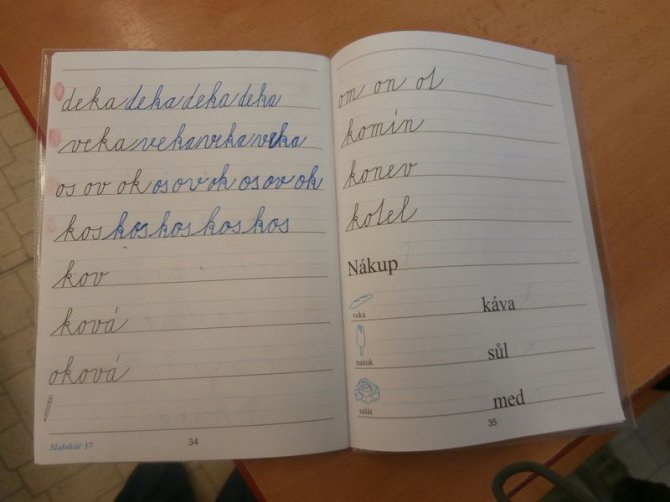 deka deka deka deka
veka veka veka veka
os ov ok os ov ok os ov ok
kos kos kos kos kos
kov
ková
oková
Slabikár 37
34
om on ol
komín
konev
kotel
Nákup
veka
káva
nanuk
sůl
salát
med
35